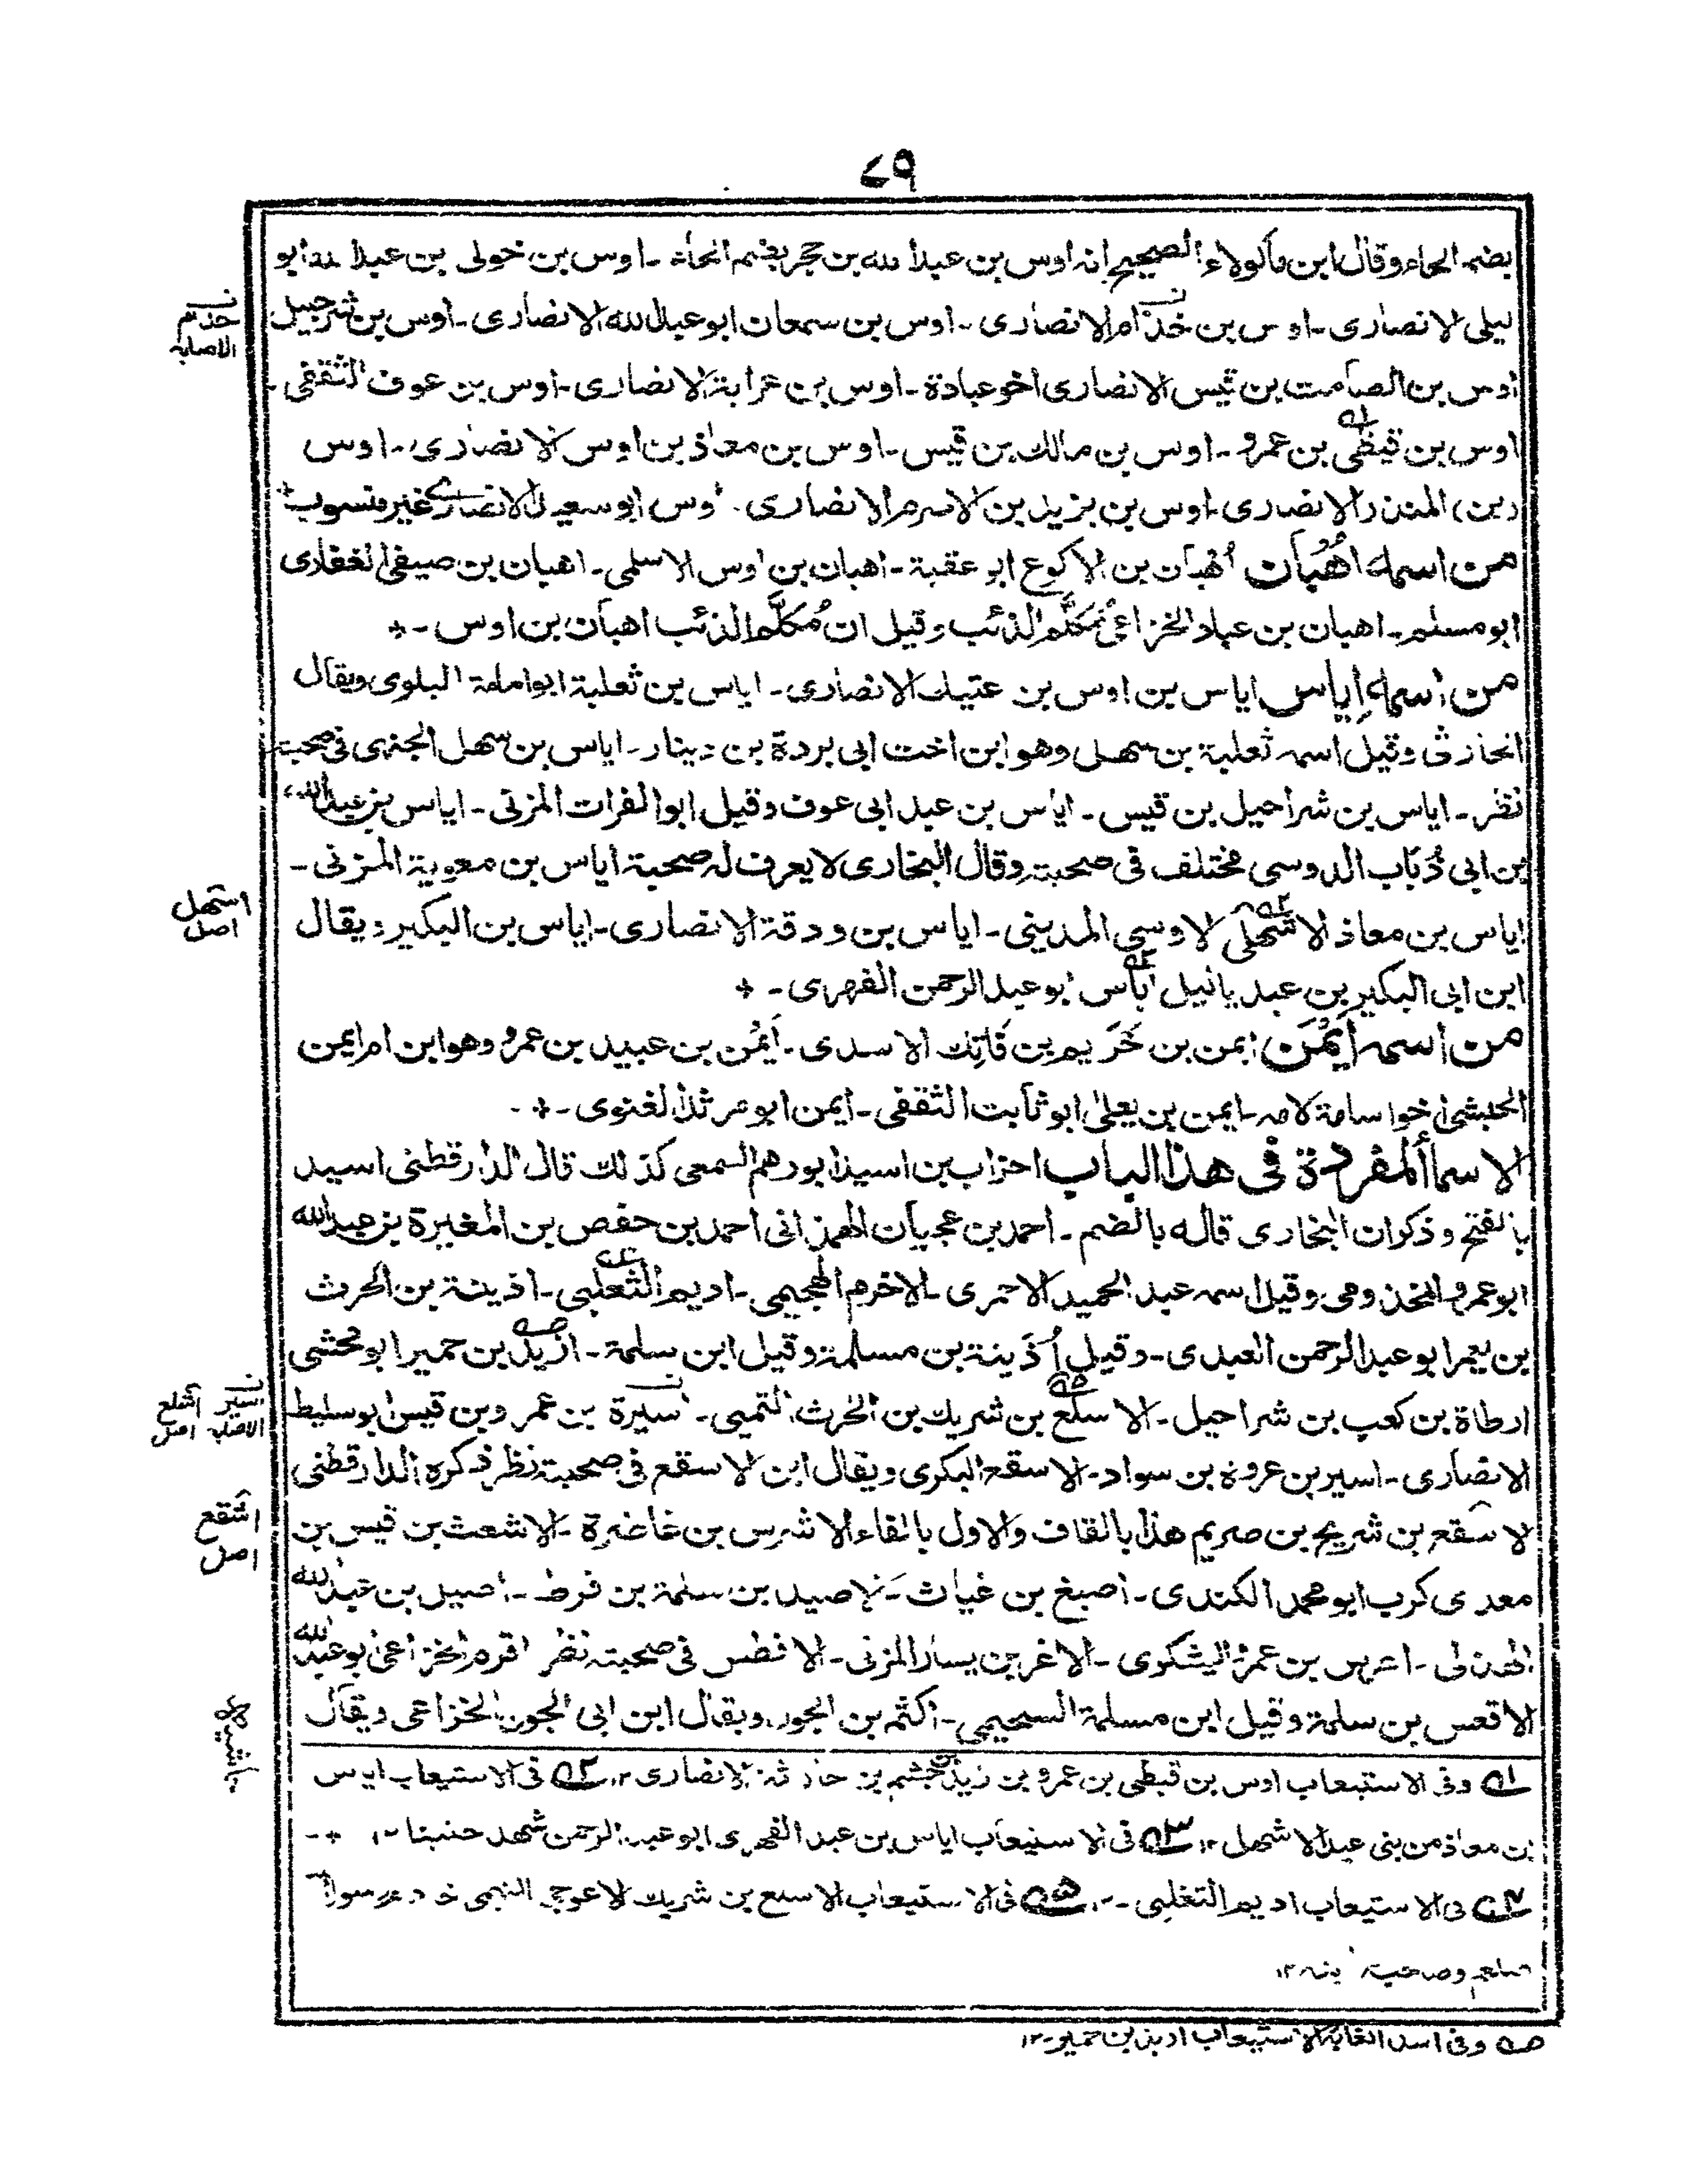 ٧٩
بضم الحاء وقال ابن ماكولاء الصحيح انه اوس بن عبد الله بن حجر بضم الحاء - اوس بن خولى بن عبد الله ابو
ليلى الانصارى - اوس بن خذام الانصارى - اوس بن سمعان ابو عبد الله الانصارى - اوس بن شرحبيل
اوس بن الصامت بن قيس الانصارى اخو عبادة - اوس بن عرابة الانصارى - اوس بن عوف الثقفى -
اوس بن قيظى بن عمرو - اوس بن مالك بن قيس - اوس بن معاذ بن اوس الانصارى - اوس
(بن) المنذر الانصارى - اوس بن يزيد بن الاصرم الانصارى - اوس ابو سعيد الانصارى غير منسوب *
من اسمه اُهْبَان اُهبان بن الاكوع ابو عقبة - اهبان بن اوس الاسلمى - اهبان بن صيفى الغفارى
ابو مسلم - اهبان بن عياد الخزاعى مُكَلَّم الذئب وقيل ان مُكلَّم الذئب اهبان بن اوس - *
من اسمه اِياس اياس بن اوس بن عتيك الانصارى - اياس بن ثعلبة ابو امامة البلوى ويقال
الحارثى وقيل اسمه ثعلبة بن سهل وهو ابن اخت ابى بردة بن دينار - اياس بن سهل الجهنى فى صحبته
نظر - اياس بن شراحيل بن قيس - اياس بن عبد ابى عوف وقيل ابو الفرات المزنى - اياس بن عبد الله
بن ابى ذُبَاب الدوسى مختلف فى صحبته وقال البخارى لا يعرف له صحبة اياس بن معوية المزنى -
اياس بن معاذ الاشهلى الاوسى المدينى - اياس بن ودقة الانصارى - اياس بن البكير ويقال
ابن ابى البكير بن عبد ياليل اياس ابو عبد الرحمن الفهرى - *
من اسمه اَيْمَن ايمن بن خُرَيم بن فَاتِك الاسدى - اَيْمَن بن عبيد بن عمرو وهو ابن ام ايمن
الحبشى اخو اسامة لامه - ايمن بن يعلىٰ ابو ثابت الثقفى - ايمن ابو مرثد الغنوى - *
الاسماء المفردة فى هذا الباب احزاب بن اسيد ابو رهم السمعى كذلك قال الدارقطنى اسيد
بالفتح وذكر ان البخارى قاله بالضم - احمد بن عجيان الهمذانى احمد بن حفص بن المغيرة بن عبد الله
ابو عمرو المخزومى وقيل اسمه عبد الحميد الاحمرى - الاخرم الهجيمى - اديم الثعلبى - اذينة بن الحرث
بن يعمر ابو عبد الرحمن العبدى - وقيل اُذَينة بن مسلمة وقيل ابن سلمة - ازيد بن حمير ابو مخشى
ارطاة بن كعب بن شراحيل - الاسلع بن شريك بن الحرث التميمى - اسيرة بن عمرو بن قيس ابو سليط
الانصارى - اسير بن عروة بن سواد - الاسقع البكرى ويقال ابن الاسقع فى صحبته نظر ذكره الدارقطنى
الاسقع بن شريح بن صريم هذا بالقاف والاول بالفاء الاشرس بن غاضرة - الاشعث بن قيس بن
معدى كرب ابو محمد الكندى - اصبغ بن غياث - الاصيد بن سلمة بن قرط - اصيل بن عبد الله
الهذلى - اعرس بن عمرو اليشكوى - الاغر بن يسار المزنى - الافطس فى صحبته نظر اقرم الخزاعى ابو عبد الله
الاقعس بن سلمة وقيل ابن مسلمة السحيمى - اكثم بن الجون ويقال ابن ابى الجون الخزاعى ويقال
خذام
الاصابه
اشهل
اصل
اسير الاصابه
اشلع اصل
اشقع
اصل
حاشيه
ا؎ وفى الاستيعاب اوس بن قيظى بن عمرو بن زيد بن جشم بن حارثة الانصارى ١٢ ٢؎ فى الاستيعاب اياس
بن معاذ من بنى عبد الاشهل ١٢ ٣؎ فى الاستيعاب اياس بن عبد الفهرى ابو عبد الرحمن شهد حنينا ١٢ * -
٤؎ فى الاستيعاب اديم التغلبى - ١٢ ٥؎ فى الاستيعاب الاسلع بن شريك الاعوجى التميمى خادم رسول
صلعم وصاحب ١٢
ص؎ وفى اسد الغابة والاستيعاب اربد بن حمير - ١٢